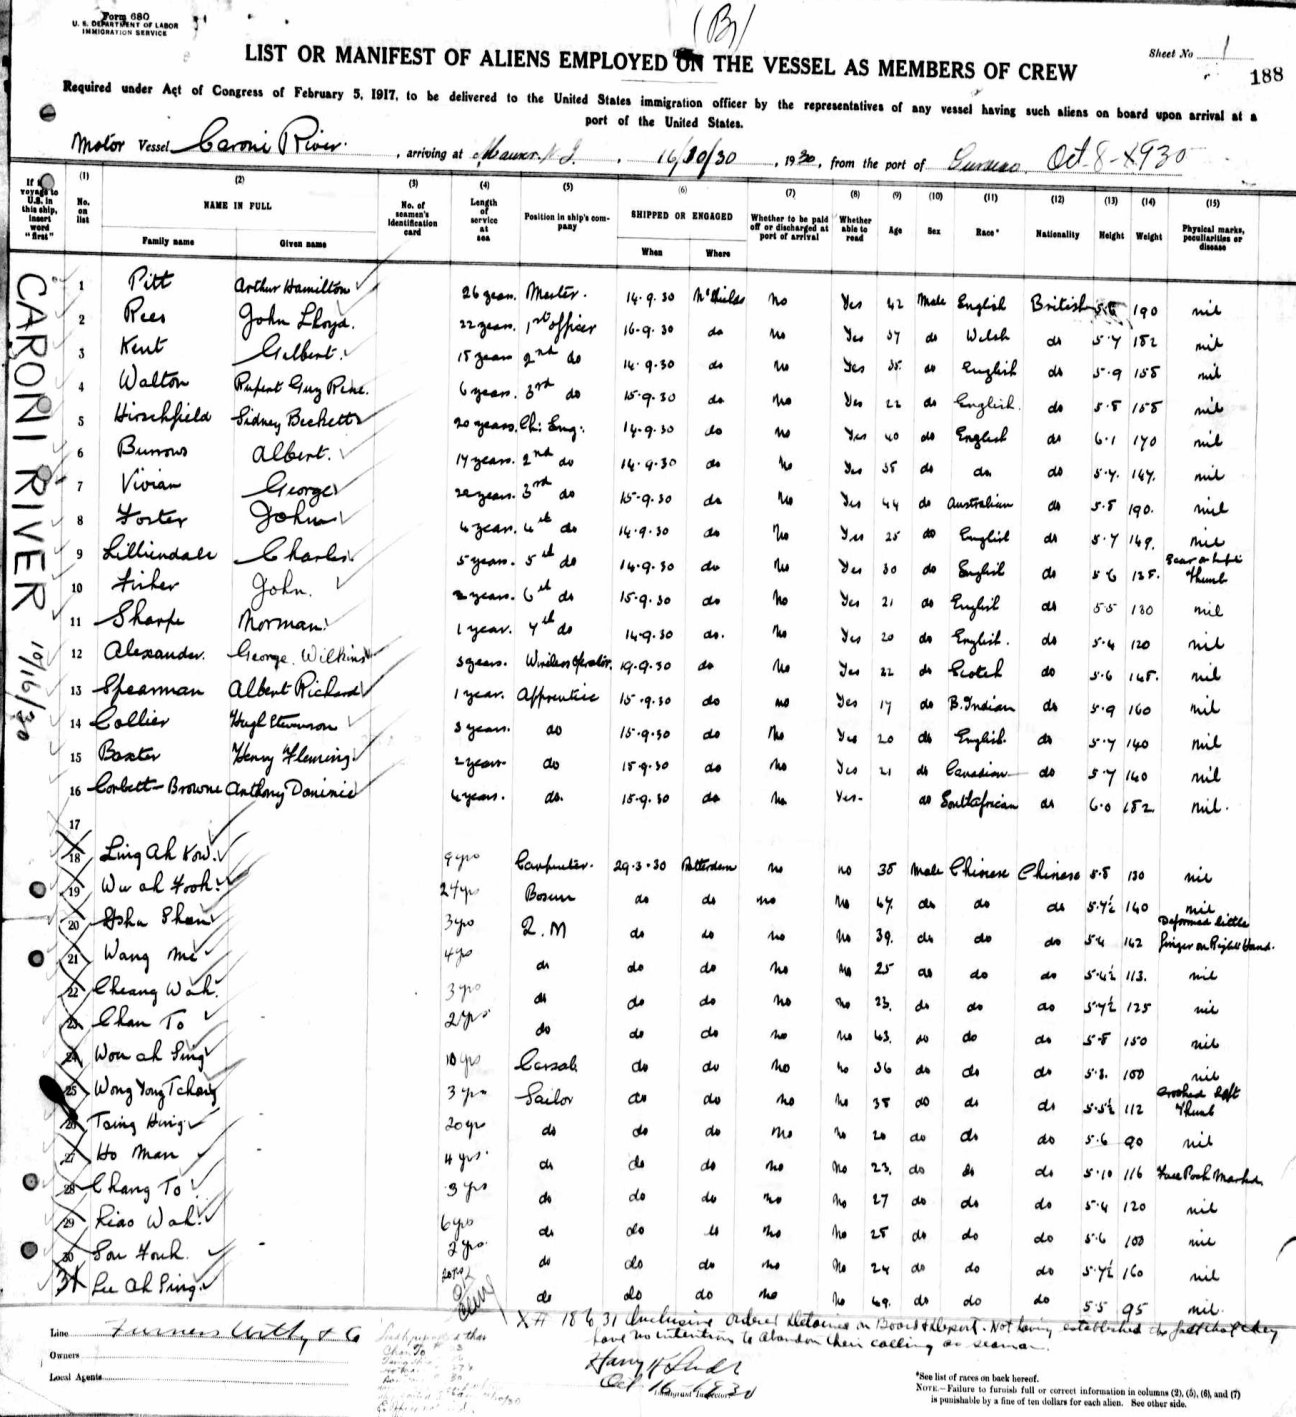 Form 680
U. S. DEPARTMENT OF LABOR
IMMIGRATION SERVICE
(B)
Sheet No 1
188
LIST OR MANIFEST OF ALIENS EMPLOYED ON THE VESSEL AS MEMBERS OF CREW
Required under Act of Congress of February 5, 1917, to be delivered to the United States immigration officer by the representatives of any vessel having such aliens on board upon arrival at a
port of the United States.
Motor Vessel Caroni River, arriving at N.J., 16/10/30, 1930, from the port of Oct. 8-1930
(1) (2) (3) (4) (5) (6) (7) (8) (9) (10) (11) (12) (13) (14) (15)
No. on list NAME IN FULL Family name Given name No. of seamen's identification card Length of service at sea Position in ship's company SHIPPED OR ENGAGED When Where Whether to be paid off or discharged at port of arrival Whether able to read Age Sex Race* Nationality Height Weight Physical marks, peculiarities or disease
CARONI RIVER 10/16/30
1 Pitt Arthur Hamilton 26 years. Master. 14.9.30 no Yes 42 Male English British 190 nil
2 Rees John Lloyd. 22 years. 1st officer 16.9.30 do no Yes 37 do Welsh do 5.7 182 nil
3 Kent Gilbert. 15 years 2nd do 14.9.30 do no Yes 35 do English do 5.9 155 nil
4 Walton Rupert Guy 6 years. 3rd do 15.9.30 do no Yes 22 do English. do 5.8 155 nil
5 Hirschfield Sidney Beckett 20 years. Ch: Eng: 14.9.30 do no Yes 40 do English do 6.1 170 nil
6 Burrows Albert. 14 years. 2nd do 14.9.30 do no Yes 35 do do do 5.7. 147. nil
7 Vivian George 22 years. 3rd do 15.9.30 do no Yes 44 do Australian do 5.8 190. nil
8 Foster John 4 years. 4th do 14.9.30 do no Yes 25 do English do 5.7 149. nil
9 Lilliendale Charles 5 years. 5th do 14.9.30 do no Yes 30 do English do 5.6 125. Scar on left thumb
10 Fisher John. 2 years. 6th do 15.9.30 do no Yes 21 do English do 5.5 130 nil
11 Sharpe Norman. 1 year. 7th do 14.9.30 do. no Yes 20 do English. do 5.4 120 nil
12 Alexander. George. Wilkins 3 years. Wireless operator. 19.9.30 do no Yes 22 do Scotch do 5.6 145. nil
13 Spearman Albert Richard 1 year. Apprentice 15.9.30 do no Yes 17 do B. Indian do 5.9 160 nil
14 Collier Hugh Stevenson 3 years. do 15.9.30 do no Yes 20 do English. do 5.7 140 nil
15 Baxter Henry Fleming 2 years do 15.9.30 do no Yes 21 do Canadian do 5.7 140 nil
16 Corbett-Browne Anthony Dominic 4 years. do. 15.9.30 do no Yes. do South African do 6.0 182 nil.
17
18 Ling Ah Kow. 9 yrs Carpenter. 29.3.30 Rotterdam no no 38 Male Chinese Chinese 5.5 130 nil
19 Wu ah Fook. 24 yrs Bosun do do no no 47. do do do 5.7½ 140 nil
20 Hsha Shan 3 yrs Q.M do do no no 39. do do do 5.4 142 Deformed little finger on Right Hand.
21 Wang Mi 4 yrs do do do no no 25 do do do 5.4½ 113. nil
22 Cheang Wah. 3 yrs do do do no no 23. do do do 5.7½ 125 nil
23 Chan To 2 yrs do do do no no 43. do do do 5.8 150 nil
24 Wou ah Sing 10 yrs do do no no 36 do do do 5.3. 100 nil
25 Wong Yong Tchong 3 yrs Sailor do do no no 38 do do do 5.5½ 112 Crooked left thumb
26 Tsing Hing 20 yrs do do do no no 20 do do do 5.6 90 nil
27 Ho Man 4 yrs. do do do no no 23. do do do 5.10 116 Face Pock Marked.
28 Chang To 3 yrs do do do no no 27 do do do 5.4 120 nil
29 Liao Wah. 6 yrs do do do no no 25 do do do 5.6 100 nil
30 Sou Fouk. 2 yrs. do do do no no 24 do do do 5.7½ 160 nil
31 Lu Ah Ping. do do do no no 49. do do do 5.5 95 nil.
X # 18 to 31 Inclusive ordered Detained on Board & Deport. Not having established the fact that they
have no intention to abandon their calling as seamen.
Line Furness Withy & Co
Owners
Local Agents
Harry
Oct 16-1930
Immigrant Inspector
*See list of races on back hereof.
NOTE.—Failure to furnish full or correct information in columns (2), (5), (6), and (7)
is punishable by a fine of ten dollars for each alien. See other side.